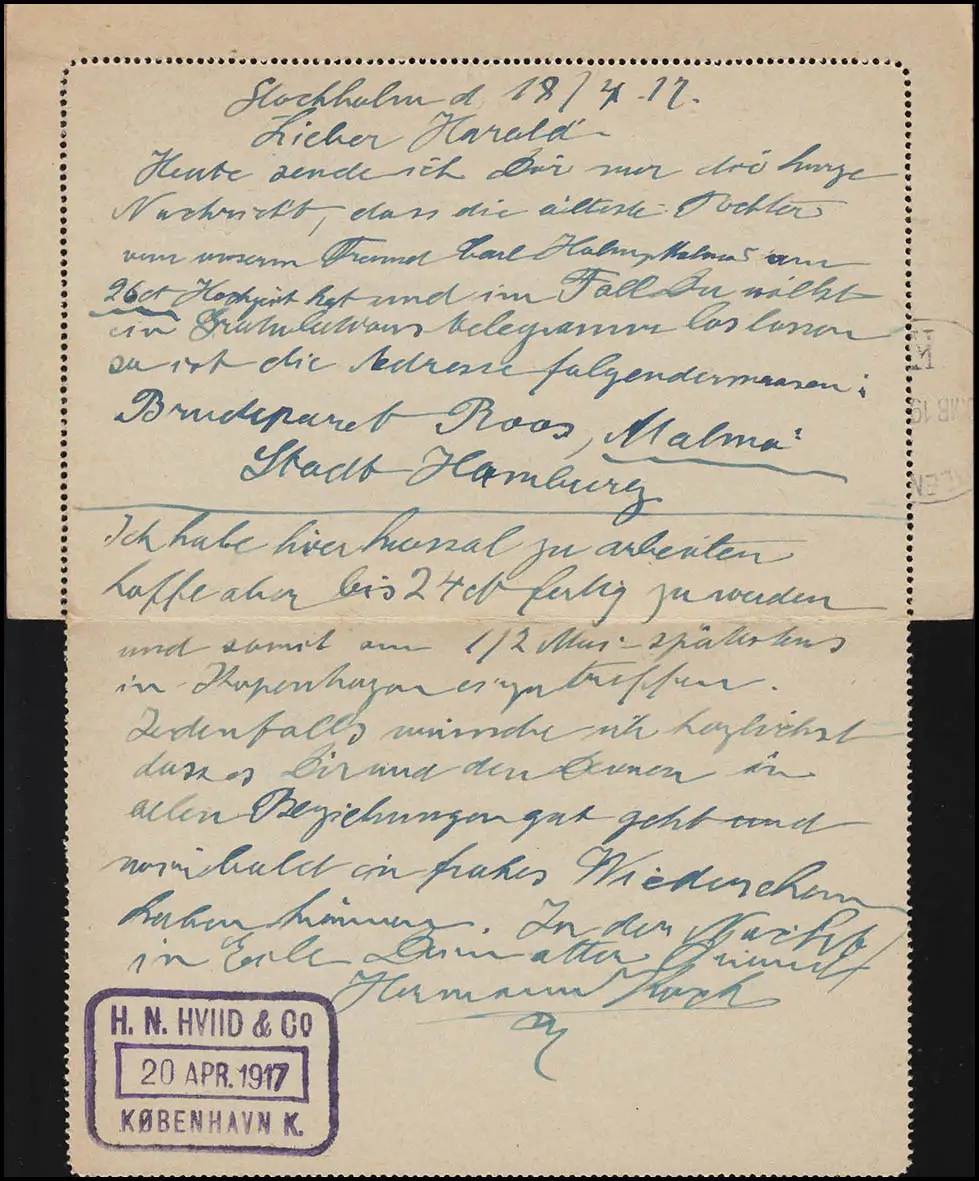 Stockholm d. 18/4.17.
Lieber Harald
Heute sende ich Dir nur die kurze
Nachricht, dass die älteste Tochter
von unserm Freund Carl Holm, Malmö am
26ct Hochzeit hat und im Fall Du willst
ein Gratulations telegramm loslassen
so ist die Adresse folgendermassen:
Brudeparet Roos, Malmö
Stadt Hamburg
Ich habe hier kolossal zu arbeiten
hoffe aber bis 24ct fertig zu werden
und somit am 1/2 Mai spätestens
in Kopenhagen einzutreffen.
Jedenfalls wünsche ich herzlichst
dass es Dir und den Deinen in
allen Beziehungen gut geht und
wir bald ein frohes Wiedersehen
haben können. In der Nacht
in Eile Dein alter Freund
Hermann Koch
H. N. HVIID & Co
20 APR. 1917
KØBENHAVN K.